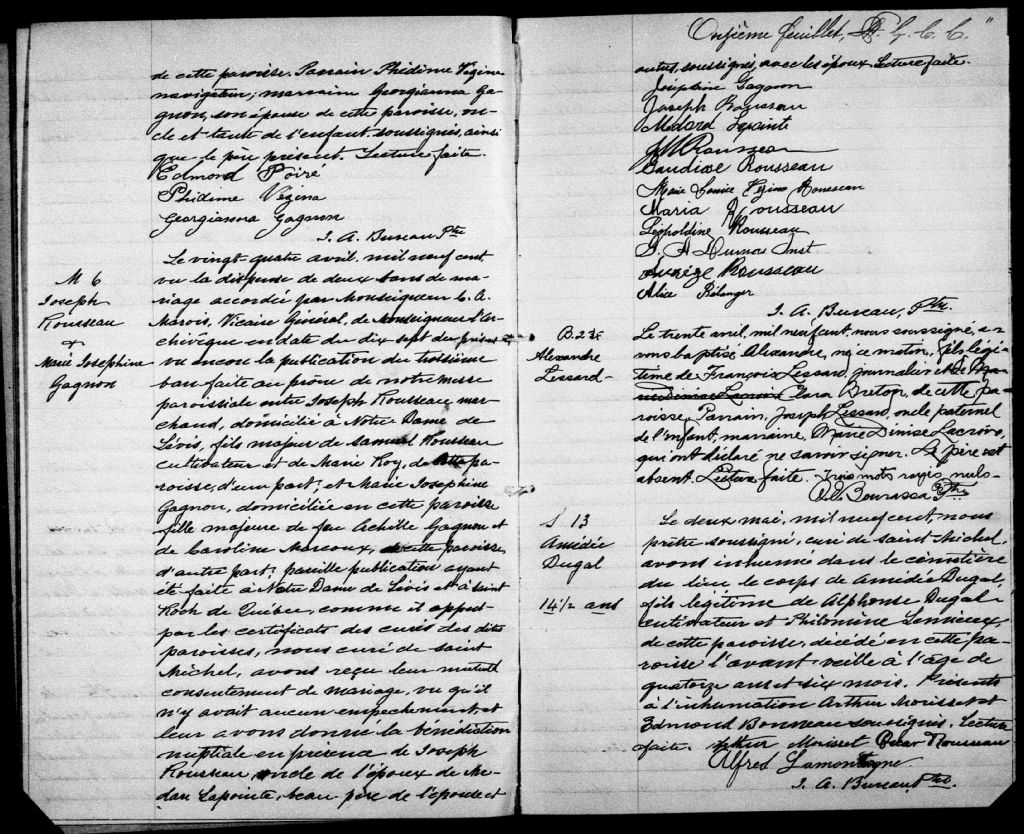 de cette paroisse. Parrain Phidime Vézina
navigateur; marraine Georgianna Ga-
gnon, son épouse de cette paroisse, on-
cle et tante de l'enfant soussignés, ainsi
que le père présent. Lecture faite.
Edmond Poiré
Phidime Vézina
Georgianna Gagnon
J. A. Bureau Ptre
M 6
Joseph
Rousseau
&
Marie Josephine
Gagnon
Le vingt-quatre avril, mil neuf cent
vu la dispense de deux bans de ma-
riage accordée par Monseigneur C. A.
Marois, Vicaire Général, de Monseigneur l'Ar-
chevêque en date du dix sept du présent
vu encore la publication du troisième
ban faite au prône de notre messe
paroissiale entre Joseph Rousseau mar-
chand, domicilié à Notre Dame de
Lévis, fils majeur de Samuel Rousseau
cultivateur et de Marie Roy, de cette pa-
roisse, d'une part; et Marie Josephine
Gagnon, domiciliée en cette paroisse
fille majeure de feu Achille Gagnon et
de Caroline Marcoux, de cette paroisse
d'autre part; pareille publication ayant
été faite à Notre Dame de Lévis et à Saint
Roch de Québec, comme il appert
par les certificats des curés des dites
paroisses, nous curé de Saint
Michel, avons reçu leur mutuel
consentement de mariage, vu qu'il
n'y avait aucun empêchement et
leur avons donné la bénédiction
nuptiale en présence de Joseph
Rousseau, oncle de l'époux de Mé-
dar Lapointe, beau-père de l'épouse et
Onzième feuillet,
autres soussignés, avec les époux. Lecture faite.
Josephine Gagnon
Joseph Rousseau
Médard Lapointe
Rousseau
Gaudiose Rousseau
Marie Louise Vézina Rousseau
Maria Rousseau
Léopoldine Rousseau
Dumas Inst
Rousseau
Alice Bélanger
J. A. Bureau, Ptre.
B. 23
Alexandre
Lessard
Le trente avril, mil neuf cent, nous soussigné, a-
vons baptisé Alexandre, né ce matin, fils légi-
time de François Lessard, journalier et de
Clara Breton, de cette pa-
roisse, Parrain, Joseph Lessard, oncle paternel
de l'enfant, marraine, Marie Denise Lacroix,
qui ont déclaré ne savoir signer. Le père est
absent. Lecture faite. Trois mots rayés nuls.
Bourassa Ptre
S 13
Amédée
Dugal
14½ ans
Le deux mai, mil neuf cent, nous
prêtre soussigné, curé de Saint Michel,
avons inhumé dans le cimetière
du lieu le corps de Amédée Dugal,
fils légitime de Alphonse Dugal
cultivateur et Philomène Lemieux,
de cette paroisse, décédé en cette pa-
roisse l'avant-veille à l'âge de
quatorze ans et six mois. Présents
à l'inhumation Arthur Morisset et
Edmond Bonneau soussignés. Lecture
faite. Arthur Morisset Oscar Rousseau
Alfred Lamontagne
J. A. Bureau Ptre.